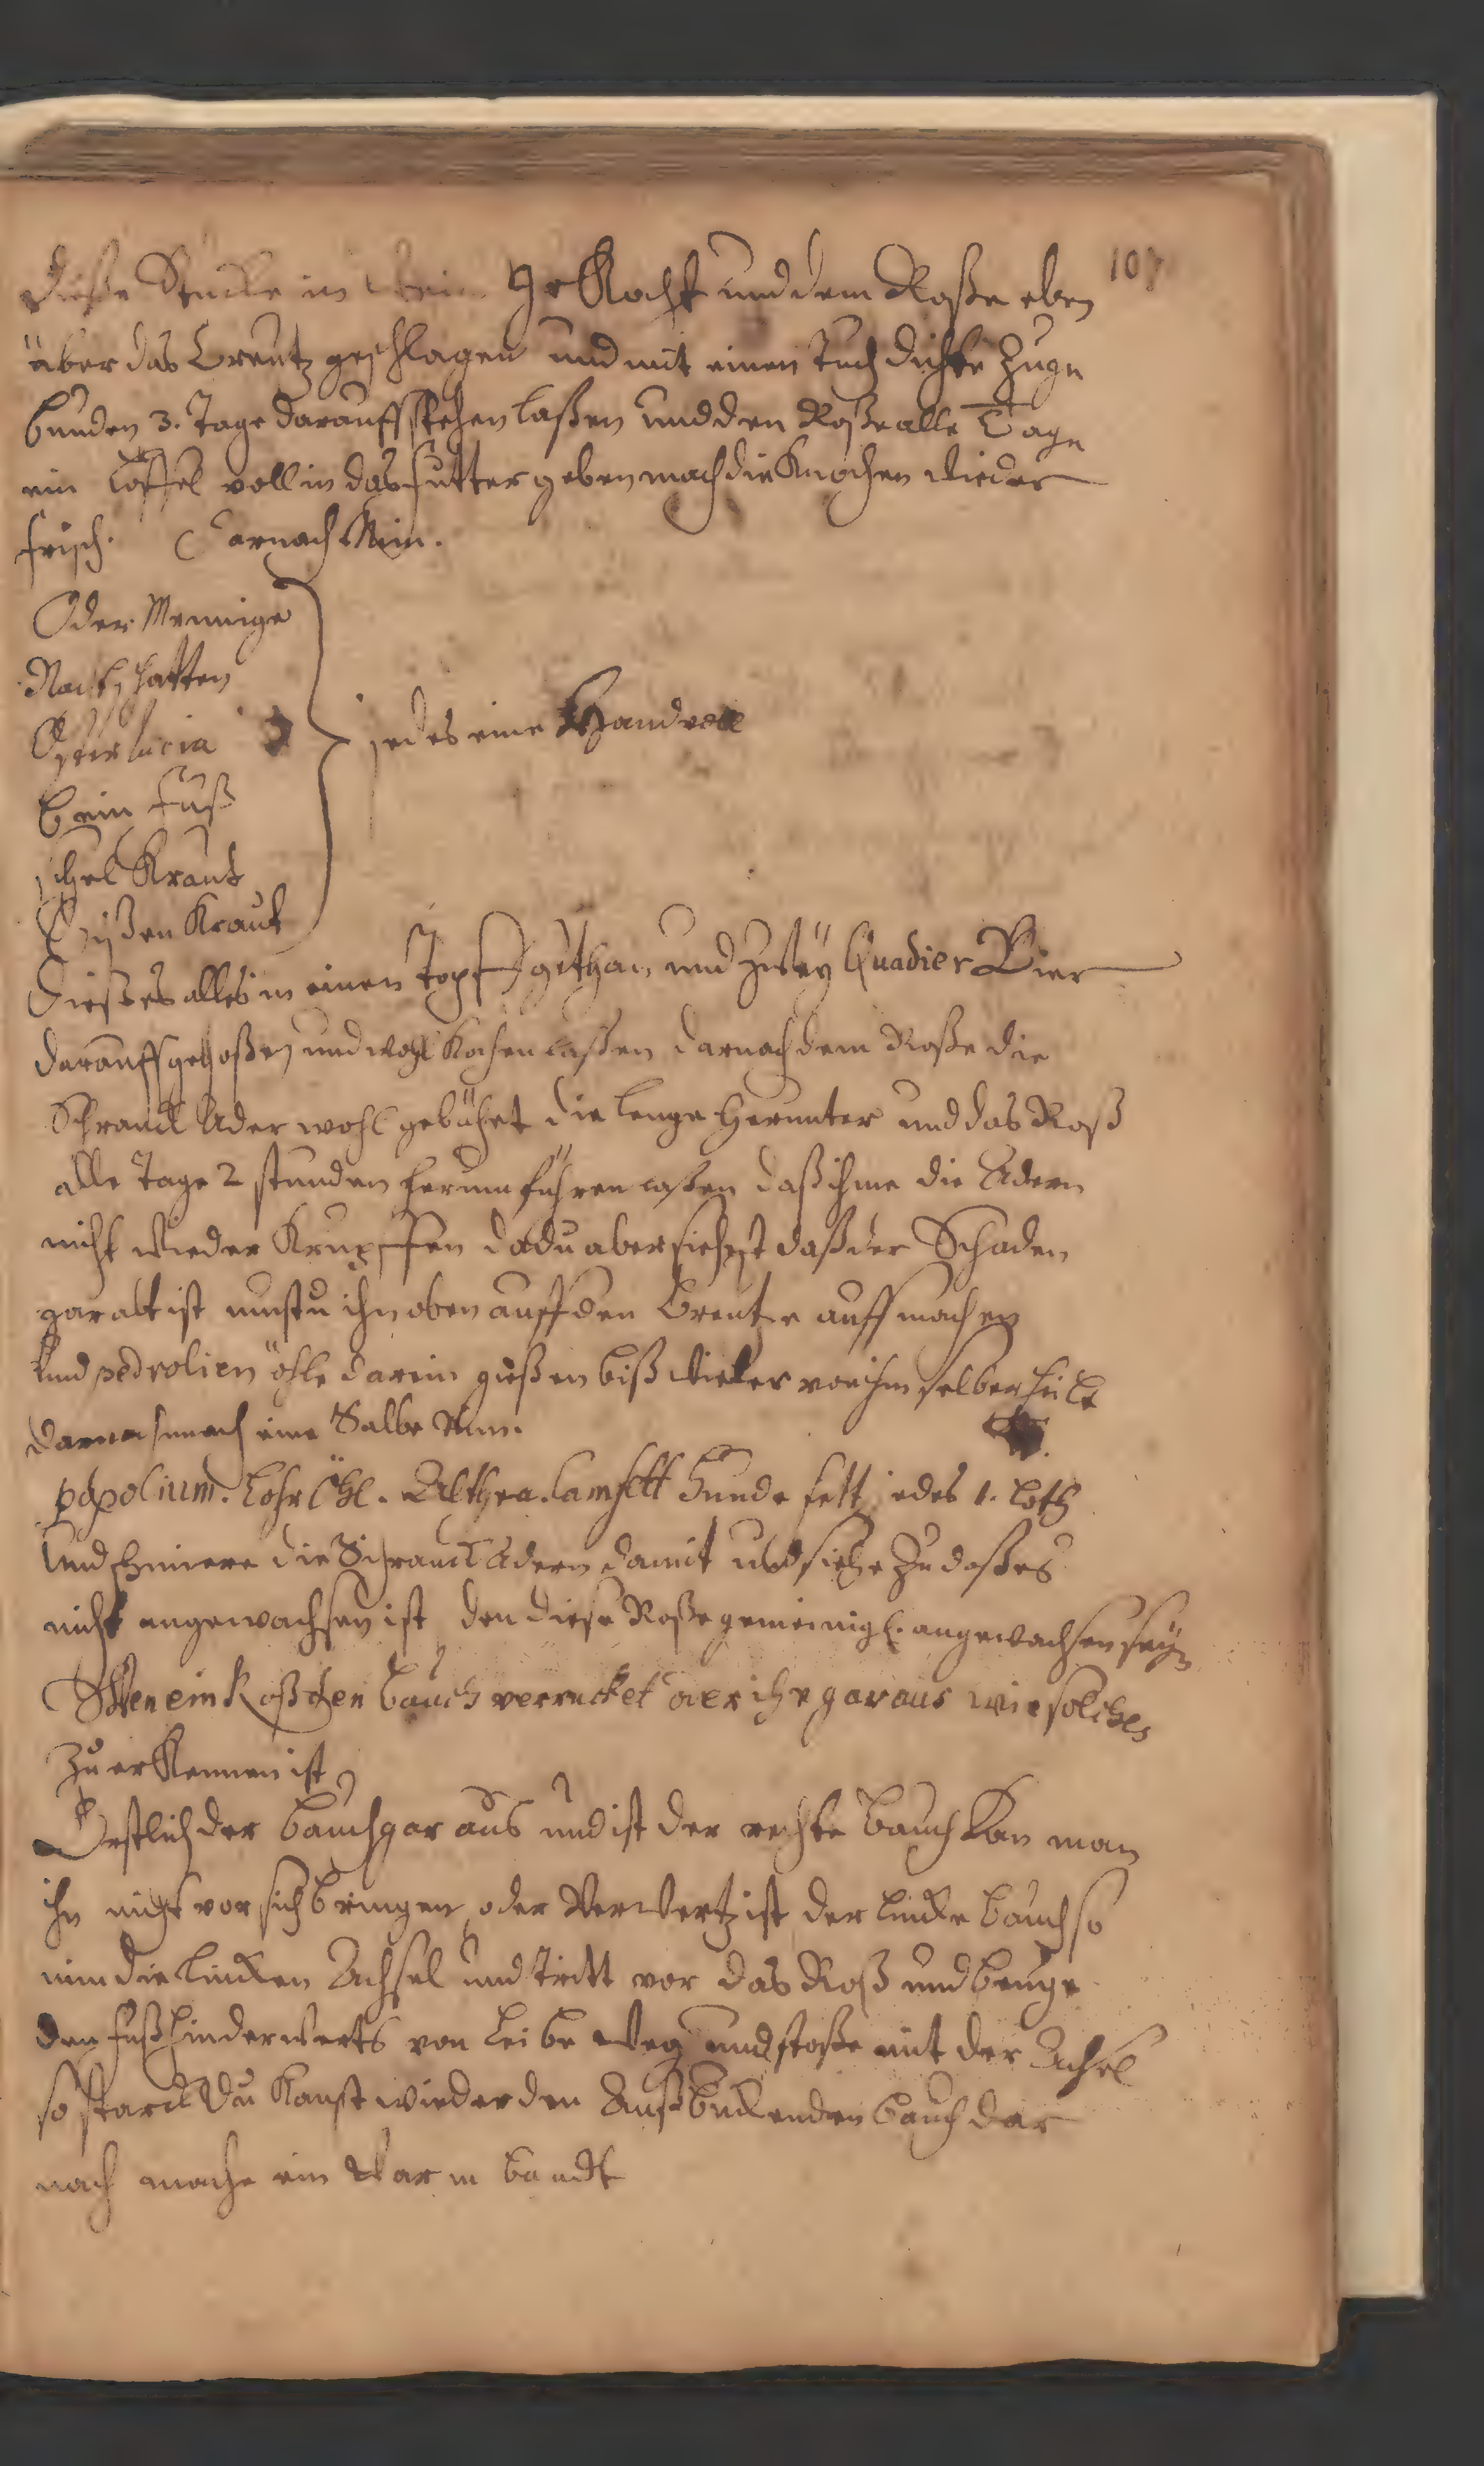 107
Dieße Stucke in Wein gekocht und dem Roße eben
über das Creutz geschlagen und mit einen Tuch dichte Zuge
bunden 3. Tage darauff stehen laßen und den Roße alle Tage
ein Löffel voll in das futter geben mach die Knochen wieder
frisch. Darnach Nim.
Oder Mennige
Nachtschatten
Osterlucia
bein fuß
schel Kraut
Eißen Kraut
jedes eine Handvoll
Dießes alles in einen Topff gethan und zweÿ Quadier Bier
darauff gegoßen und wohl Kochen laßen darnach dem Roße die
Schranck Ader wohl gebähet die lenge herunter und das Roß
alle Tage 2 stunden herum führen laßen daß ihme die Adern
nicht wieder Krupffen da du aber siehest daß der Schaden
gar alt ist mustu ihn oben auff den Creutze auff machen
und pedrolien öhle darein gießen biß wieder von ihm selber heilt
darnach mach eine Salbe Nim.
popolium. Lohr Öhl. Althea. Camfett Hunde fett jedes 1. loth
und schmiere die Schranck Adern damit und siehe zu daß es
nicht angewachsen ist den diese Roße gemeinigl. angewachsen seÿn
Wen ein Roß den bauch verrucket oder ihr gar aus wie solches
zu erkennen ist
Erstlich der bauch gar aus und ist der rechte bauch kan man
ihn nicht vor sich bringen oder Verwertz ist der lincke bauch so
nim die lincken Achsel und tritt vor das Roß und beuge
den fuß hinderwerts von leibe weg und stoße mit der Achsel
so starck du kanst wieder den Außbuckenden bauch dar
nach mache ein warm bandt